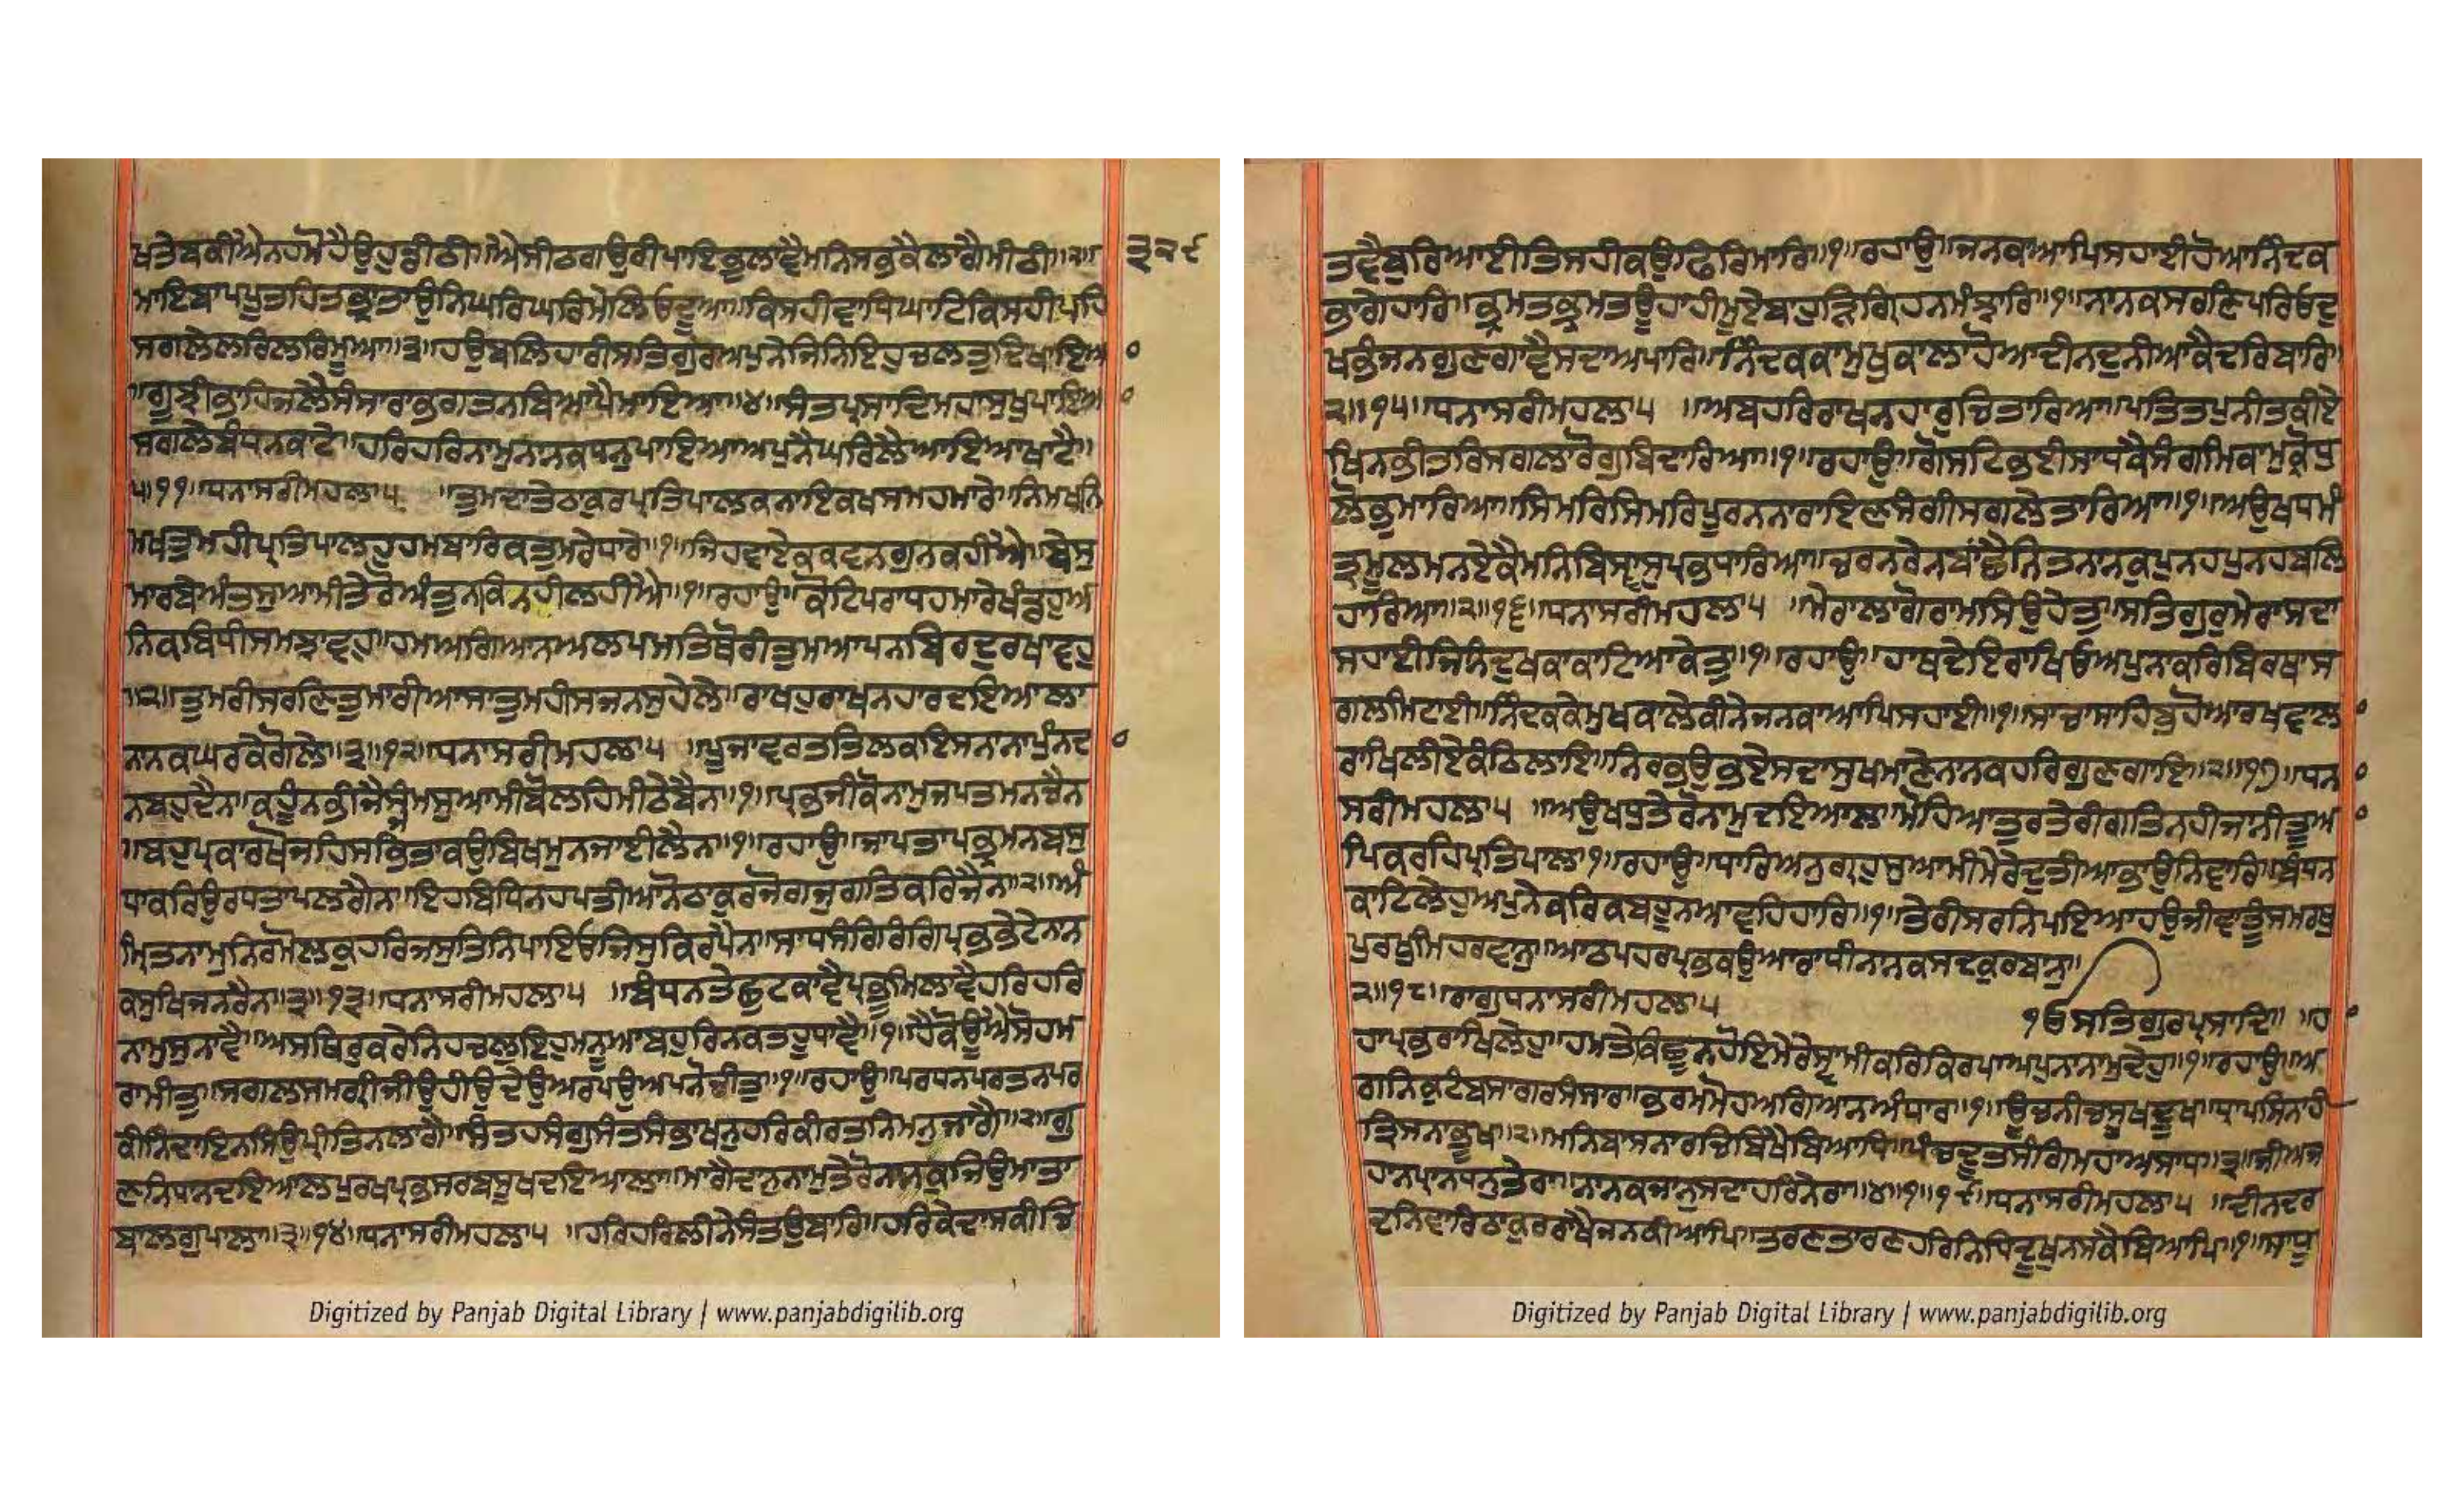 ਖਤੇਬਕੀਐਨਹਮੋਹੈਉਹੁਡੀਠੀ॥ਐਸੀਠਗਉਰੀਪਾਇਭੁਲਾਵੈਮਨਿਸਭਕੈਲਾਗੈਮੀਠੀ॥੨॥
ਮਾਇਬਾਪਪੂਤਹਿਤਭ੍ਰਾਤਾਉਨਿਘਰਿਘਰਿਮੇਲਿਓਦੂਆ॥ਕਿਸਹੀਵਾਧਿਘਾਟਿਕਿਸਹੀਪਹਿ
ਸਗਲੇਲਰਿਲਰਿਮੂਆ॥੩॥ਹਉਬਲਿਹਾਰੀਸਤਿਗੁਰਅਪੁਨੇਜਿਨਿਇਹੁਚਲਤੁਦਿਖਾਇਆ
॥ਗੂਝੀਭਾਹਿਜਲੈਸੰਸਾਰਾਭਗਤਨਬਿਆਪੈਮਾਇਆ॥੪॥ਸੰਤਪ੍ਰਸਾਦਿਮਹਾਸੁਖੁਪਾਇਆ
ਸਗਲੇਬੰਧਨਕਾਟੇ॥ਹਰਿਹਰਿਨਾਮੁਨਾਨਕਧਨੁਪਾਇਆਅਪੁਨੈਘਰਿਲੈਆਇਆਖਾਟੈ॥
੫॥੧੧॥ਧਨਾਸਰੀਮਹਲਾ੫ ॥ਤੁਮਦਾਤੇਠਾਕੁਰਪ੍ਰਤਿਪਾਲਕਨਾਇਕਖਸਮਹਮਾਰੇ॥ਨਿਮਖਨਿ
ਮਖਤੁਮਹੀਪ੍ਰਤਿਪਾਲਹੁਹਮਬਾਰਿਕਤੁਮਰੇਧਾਰੇ॥੧॥ਜਿਹਵਾਏਕਕਵਨਗੁਨਕਹੀਐ॥ਬੇਸੁ
ਮਾਰਬੇਅੰਤਸੁਆਮੀਤੇਰੋਅੰਤੁਨਕਿਨਹੀਲਹੀਐ॥੧॥ਰਹਾਉ॥ਕੋਟਿਪਰਾਧਹਮਾਰੇਖੰਡਹੁਅ
ਨਿਕਬਿਧੀਸਮਝਾਵਹੁ॥ਹਮਅਗਿਆਨਅਲਪਮਤਿਥੋਰੀਤੁਮਆਪਨਬਿਰਦੁਰਖਾਵਹੁ
॥੨॥ਤੁਮਰੀਸਰਣਿਤੁਮਾਰੀਆਸਾਤੁਮਹੀਸਜਨਸੁਹੇਲੇ॥ਰਾਖਹੁਰਾਖਨਹਾਰਦਇਆਲਾ
ਨਾਨਕਘਰਕੇਗੋਲੇ॥੩॥੧੨॥ਧਨਾਸਰੀਮਹਲਾ੫ ॥ਪੂਜਾਵਰਤਤਿਲਕਇਸਨਾਨਾਪੁੰਨਦ
ਨਬਹੁਦੈਨ॥ਕਹੂੰਨਭੀਜੈਸੰਜਮਸੁਆਮੀਬੋਲਹਿਮੀਠੇਬੈਨ॥੧॥ਪ੍ਰਭਜੀਕੋਨਾਮੁਜਪਤਮਨਚੈਨ
॥ਬਹੁਪ੍ਰਕਾਰਖੋਜਹਿਸਭਿਤਾਕਉਬਿਖਮੁਨਜਾਈਲੈਨ॥੧॥ਰਹਾਉ॥ਜਾਪਤਾਪਭ੍ਰਮਨਬਸੁ
ਧਾਕਰਿਉਰਧਤਾਪਲੈਗੈਨ॥ਇਹਬਿਧਿਨਹਪਤੀਆਨੋਠਾਕੁਰਜੋਗਜੁਗਤਿਕਰਿਜੈਨ॥੨॥ਅੰ
ਮ੍ਰਿਤਨਾਮੁਨਿਰਮੋਲਕੁਹਰਿਜਸੁਤਿਨਿਪਾਇਓਜਿਸੁਕਿਰਪੈਨ॥ਸਾਧਸੰਗਿਰੰਗਿਪ੍ਰਭਭੇਟੇਨਾਨ
ਕਸੁਖਿਜਨਰੈਨ॥੩॥੧੩॥ਧਨਾਸਰੀਮਹਲਾ੫ ॥ਬੰਧਨਤੇਛੁਟਕਾਵੈਪ੍ਰਭੂਮਿਲਾਵੈਹਰਿਹਰਿ
ਨਾਮੁਸੁਨਾਵੈ॥ਅਸਥਿਰੁਕਰੇਨਿਹਚਲੁਇਹੁਮਨੂਆਬਹੁਰਿਨਕਤਹੂਧਾਵੈ॥੧॥ਹੈਕੋਊਐਸੋਹਮ
ਰਾਮੀਤੁ॥ਸਗਲਸਮਗ੍ਰੀਜੀਉਹੀਉਦੇਉਅਰਪਉਅਪਨੋਚੀਤੁ॥੧॥ਰਹਾਉ॥ਪਰਧਨਪਰਤਨਪਰ
ਕੀਨਿੰਦਾਇਨਸਿਉਪ੍ਰੀਤਿਨਲਾਗੈ॥ਸੰਤਹਸੰਗੁਸੰਤਸੰਭਾਖਨੁਹਰਿਕੀਰਤਨਿਮਨੁਜਾਗੈ॥੨॥ਗੁ
ਣਨਿਧਾਨਦਇਆਲਪੁਰਖਪ੍ਰਭਸਰਬਸੂਖਦਇਆਲਾ॥ਮਾਗੈਦਾਨੁਨਾਮੁਤੇਰੋਨਾਨਕੁਜਿਉਮਾਤਾ
ਬਾਲਗੁਪਾਲਾ॥੩॥੧੪॥ਧਨਾਸਰੀਮਹਲਾ੫ ॥ਹਰਿਹਰਿਲੀਨੇਸੰਤਉਬਾਰਿ॥ਹਰਿਕੇਦਾਸਕੀਚਿ
੩੨੬
Digitized by Panjab Digital Library | www.panjabdigilib.org
ਤਵੈਬੁਰਿਆਈਤਿਸਹੀਕਉਫਿਰਿਮਾਰਿ॥੧॥ਰਹਾਉ॥ਜਨਕਾਆਪਿਸਹਾਈਹੋਆਨਿੰਦਕ
ਭਾਗੇਹਾਰਿ॥ਭ੍ਰਮਤਭ੍ਰਮਤਊਹਾਂਹੀਮੂਏਬਾਹੁੜਿਗ੍ਰਿਹਨਮੰਝਾਰਿ॥੧॥ਨਾਨਕਸਰਣਿਪਰਿਓਦੁ
ਖਭੰਜਨਗੁਣਗਾਵੈਸਦਾਅਪਾਰਿ॥ਨਿੰਦਕਕਾਮੁਖੁਕਾਲਾਹੋਆਦੀਨਦੁਨੀਆਕੈਦਰਿਬਾਰਿ॥
੨॥੧੫॥ਧਨਾਸਰੀਮਹਲਾ੫ ॥ਅਬਹਰਿਰਾਖਨਹਾਰੁਚਿਤਾਰਿਆ॥ਪਤਿਤਪੁਨੀਤਕੀਏ
ਖਿਨਭੀਤਰਿਸਗਲਾਰੋਗੁਬਿਦਾਰਿਆ॥੧॥ਰਹਾਉ॥ਗੋਸਟਿਭਈਸਾਧਕੈਸੰਗਮਿਕਾਮੁਕ੍ਰੋਧੁ
ਲੋਭੁਮਾਰਿਆ॥ਸਿਮਰਿਸਿਮਰਿਪੂਰਨਨਾਰਾਇਣਸੰਗੀਸਗਲੇਤਾਰਿਆ॥੧॥ਅਉਖਧਮੰ
ਤ੍ਰਮੂਲਮਨਏਕੈਮਨਿਬਿਸ੍ਵਾਸੁਪ੍ਰਭਧਾਰਿਆ॥ਚਰਨਰੇਨਬਾਂਛੈਨਿਤਨਾਨਕੁਪੁਨਹਪੁਨਹਬਲਿ
ਹਾਰਿਆ॥੨॥੧੬॥ਧਨਾਸਰੀਮਹਲਾ੫ ॥ਮੇਰਾਲਾਗੋਰਾਮਸਿਉਹੇਤੁ॥ਸਤਿਗੁਰੁਮੇਰਾਸਦਾ
ਸਹਾਈਜਿਨਿਦੁਖਕਾਕਾਟਿਆਕੇਤੁ॥੧॥ਰਹਾਉ॥ਹਾਥਦੇਇਰਾਖਿਓਅਪੁਨਾਕਰਿਬਿਰਥਾਸ
ਗਲਮਿਟਾਈ॥ਨਿੰਦਕਕੇਮੁਖਕਾਲੇਕੀਨੇਜਨਕਾਆਪਿਸਹਾਈ॥੧॥ਸਾਚਾਸਾਹਿਬੁਹੋਆਰਖਵਾਲਾ
ਰਾਖਿਲੀਏਕੰਠਿਲਾਇ॥ਨਿਰਭਉਭਏਸਦਾਸੁਖਮਾਣੇਨਾਨਕਹਰਿਗੁਣਗਾਇ॥੨॥੧੭॥ਧਨਾ
ਸਰੀਮਹਲਾ੫ ॥ਅਉਖਧੁਤੇਰੋਨਾਮੁਦਇਆਲਾ॥ਮੋਹਿਆਤੁਰਤੇਰੀਗਤਿਨਹੀਜਾਨੀਤੂਆ
ਪਿਕਰਹਿਪ੍ਰਤਿਪਾਲਾ॥੧॥ਰਹਾਉ॥ਧਾਰਿਅਨੁਗ੍ਰਹੁਸੁਆਮੀਮੇਰੇਦੁਤੀਆਭਾਉਨਿਵਾਰਿ॥ਬੰਧਨ
ਕਾਟਿਲੇਹੁਅਪੁਨੇਕਰਿਕਬਹੂਨਆਵਹਿਹਾਰਿ॥੧॥ਤੇਰੀਸਰਨਿਪਇਆਹਉਜੀਵਾਂਤੂੰਸਮਰਥੁ
ਪੁਰਖੁਮਿਹਰਵਾਨੁ॥ਆਠਪਹਰਪ੍ਰਭਕਉਆਰਾਧੀਨਾਨਕਸਦਕੁਰਬਾਨੁ॥
੨॥੧੮॥ਰਾਗੁਧਨਾਸਰੀਮਹਲਾ੫
ੴਸਤਿਗੁਰਪ੍ਰਸਾਦਿ॥ ॥ਹ
ਹਾਪ੍ਰਭਰਾਖਿਲੇਹੁ॥ਹਮਤੇਕਿਛੂਨਹੋਇਮੇਰੇਸ੍ਵਾਮੀਕਰਿਕਿਰਪਾਅਪੁਨਾਨਾਮੁਦੇਹੁ॥੧॥ਰਹਾਉ॥ਅ
ਗਨਿਕੁਟੰਬਸਾਗਰਸੰਸਾਰ॥ਭਰਮਮੋਹਅਗਿਆਨਅੰਧਾਰ॥੧॥ਊਚਨੀਚਸੂਖਦੂਖ॥ਧ੍ਰਾਪਸਿਨਾਹੀ
ਤ੍ਰਿਸਨਾਭੂਖ॥੨॥ਮਨਿਬਾਸਨਾਰਚਿਬਿਖੈਬਿਆਧਿ॥ਪੰਚਦੂਤਸੰਗਿਮਹਾਅਸਾਧ॥੩॥ਜੀਅਜ
ਹਾਨਪ੍ਰਾਨਧਨੁਤੇਰਾ॥ਨਾਨਕਜਾਨੁਸਦਾਹਰਿਨੇਰਾ॥੪॥੧॥੧੯॥ਧਨਾਸਰੀਮਹਲਾ੫ ॥ਦੀਨਦਰ
ਦਨਿਵਾਰਿਠਾਕੁਰਰਾਖੈਜਨਕੀਆਪਿ॥ਤਰਣਤਾਰਣਹਰਿਨਿਧਿਦੂਖੁਨਸਕੈਬਿਆਪਿ॥੧॥ਸਾਧੂ
Digitized by Panjab Digital Library | www.panjabdigilib.org